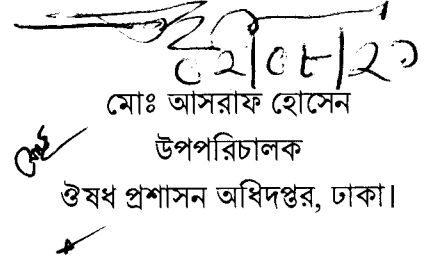 ০২|০৮|২০
মোঃ আসরাফ হোসেন
উপপরিচালক
ঔষধ প্রশাসন অধিদপ্তর, ঢাকা।